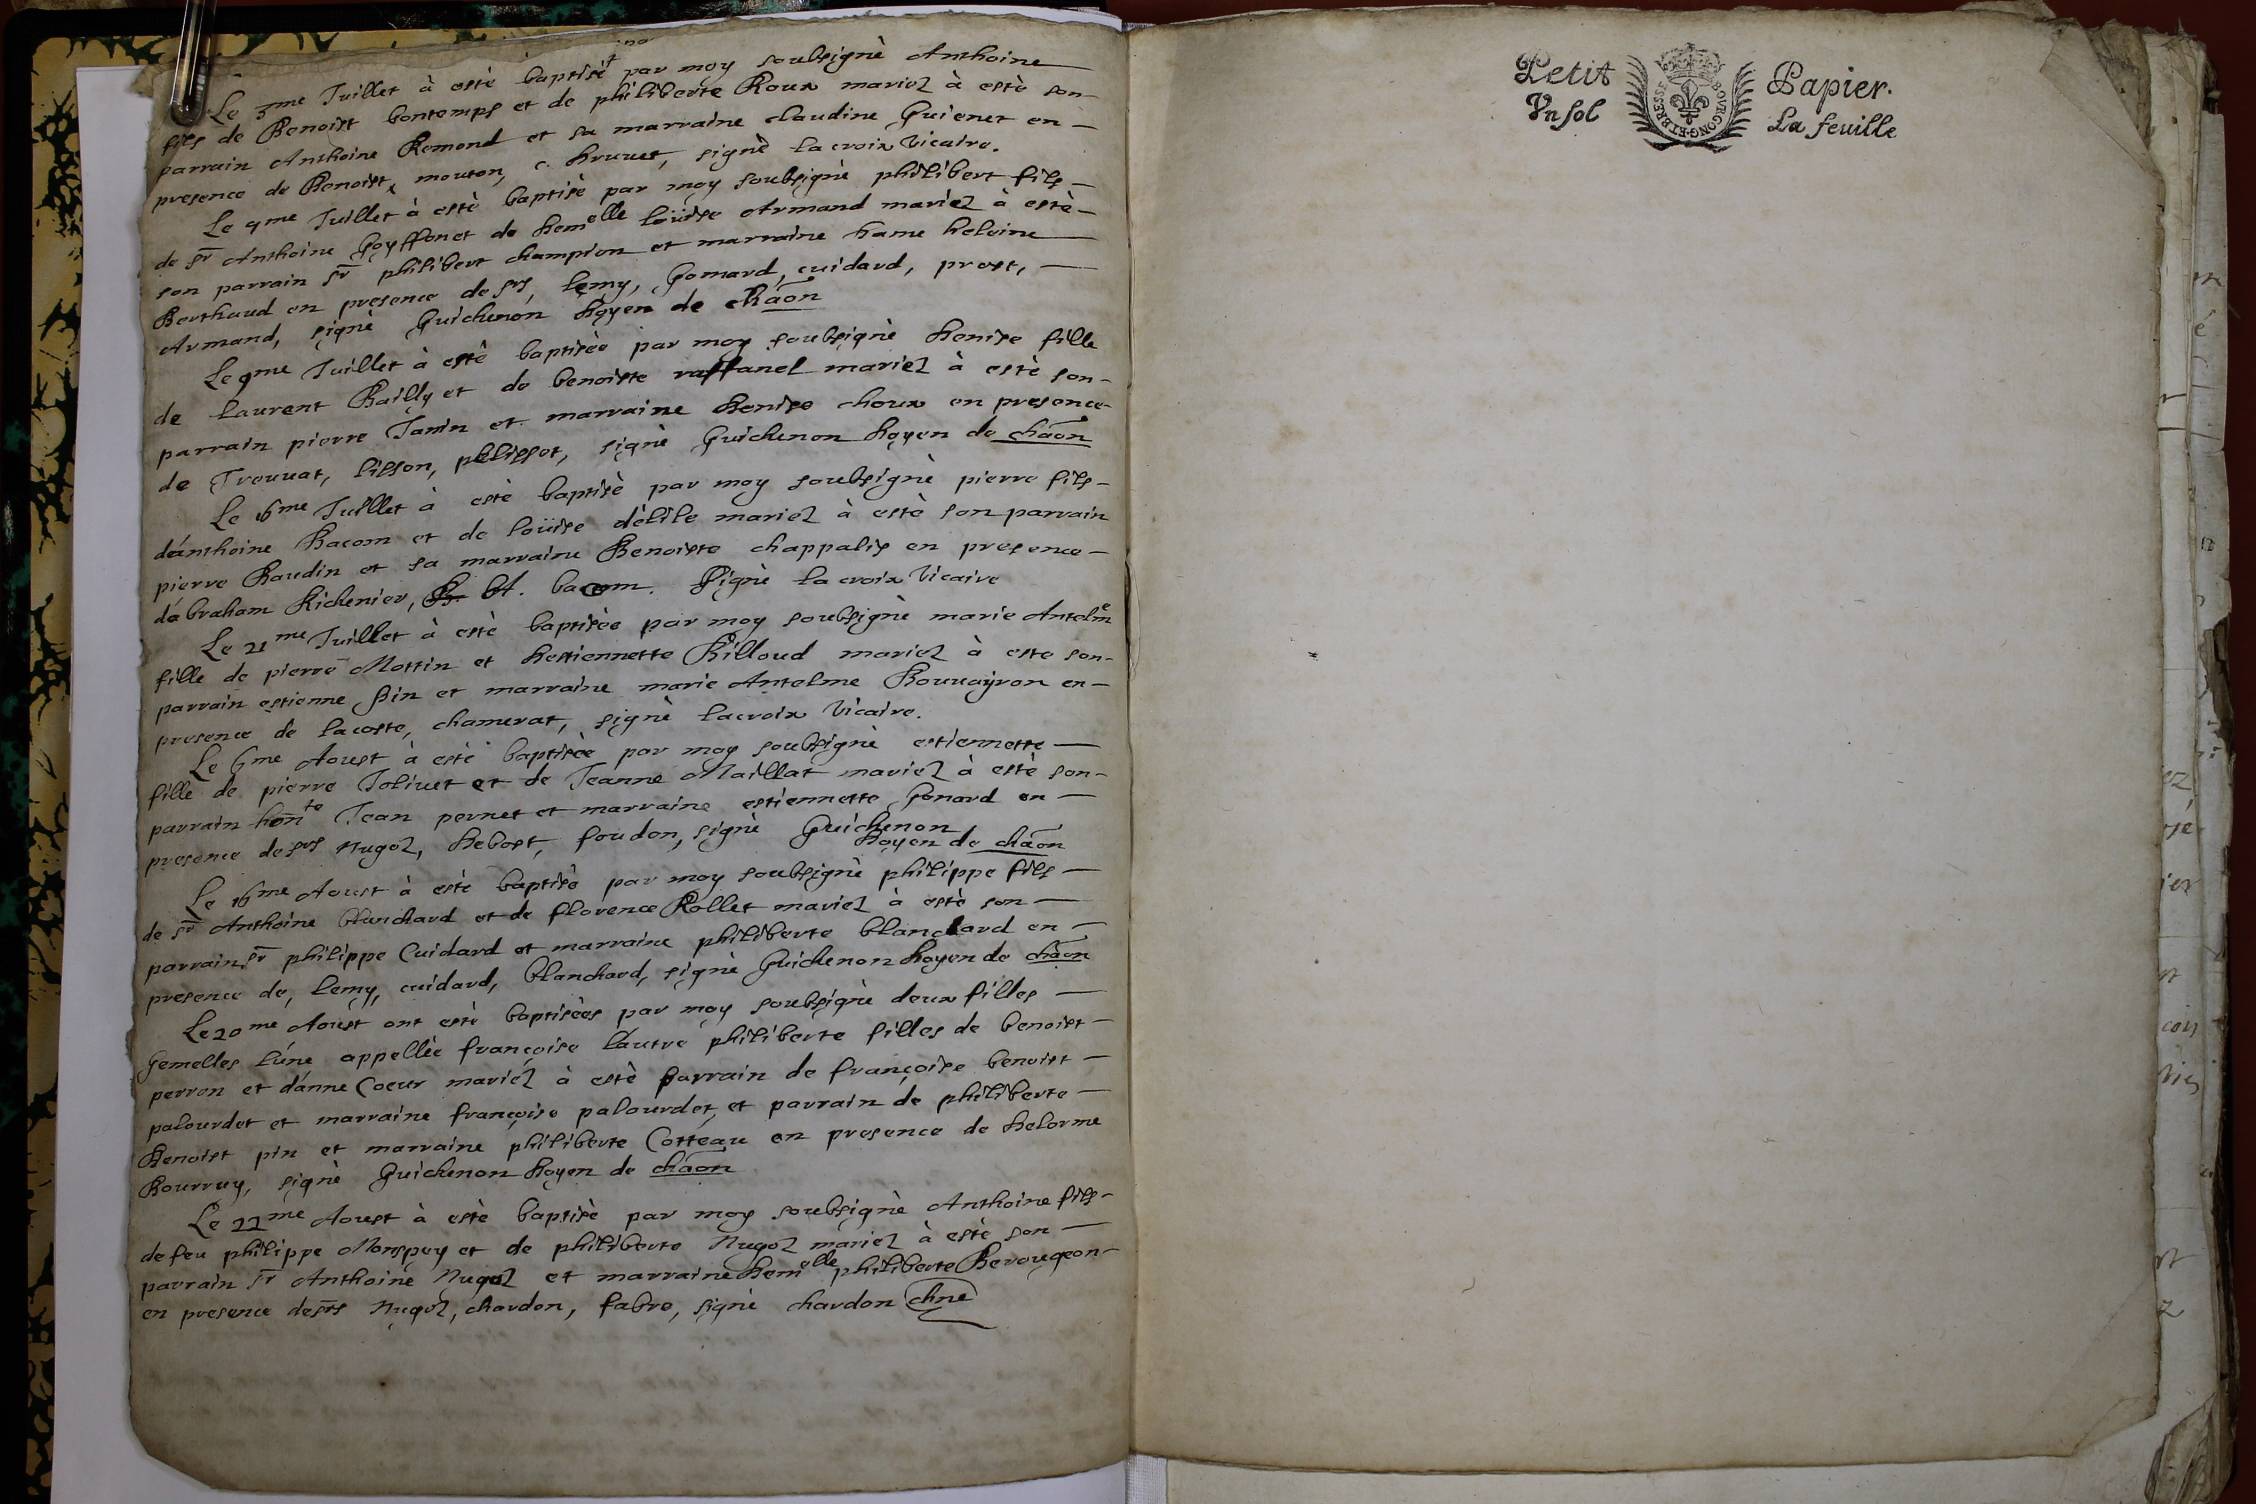 Le 3me Juillet à estè baptisè par moy soubsignè Anthoine
fils de Benoist bontemps et de philiberte Roux mariez à estè son
parrain Anthoine Remond et sa marraine claudine Guienet en
presence de Benoist, mouton, signè la croix vicaire.
Le 4me Juillet à estè baptisè par moy soubsignè philibert fils
de sr Anthoine Goyffon et de Demelle loüise Armand mariez à estè
son parrain sr philibert champion et marraine Dame heleine
Berthaud en presence de srs, lemy, Gomard, cuidard, prost,
Armand, signè Guichenon Doyen de chãon
Le 9me Juillet à estè baptisèe par moy soubsignè Denise fille
de laurent Bailly et de benoiste raffanel mariez à estè son
parrain pierre Janin et marraine Denise choux en presence
de Trouuat, lisson, pelissot, signè Guichenon Doyen de chãon
Le 16me Juillet à estè baptisè par moy soubsignè pierre fils
déanthoine Bacom et de loüise délile mariez à estè son parrain
pierre Baudin et sa marraine Benoiste chappalis en presence
dábraham Richenier, bt. bacom. signè la croix vicaire
Le 21me Juillet à estè baptisèe par moy soubsignè marie Antelme
fille de pierre Mottin et Destiennette Billoud mariez à este son
parrain estienne pin et marraine marie Antelme Bouuayron en
presence de lacoste, chamerat, signè lacroix vicaire.
Le 6me Aoust à estè baptisèe par moy soubsignè estiennette
fille de pierre Joliuet et de Jeanne Maillat mariez à estè son
parrain honte Jean pernet et marraine estiennette Gonard en
presence de srs Nugoz, Debost, foudon, signè Guichenon
Doyen de chãon
Le 16me Aoust à estè baptisè par moy soubsignè philippe fils
de sr Anthoine Blanchard et de florence Rollet mariez à estè son
parrain sr philippe Cuidard et marraine philiberte blanchard en
presence de, lemy, cuidard, blanchard, signè Guichenon Doyen de chãon
Le 20me Aoust ont estè baptisèes par moy soubsignè deux filles
Gemelles lúne appellèe françoise láutre philiberte filles de benoist
perron et dánne Coeur mariéz à estè parrain de françoise benoist
palourdet et marraine françoise palourdet, et parrain de philiberte
Benoist pin et marraine philiberte Cotteau en presence de Delorme
Bourruy, signè Guichenon Doyen de chãon
Le 22me Aoust à estè baptisè par moy soubsignè Anthoine fils
de feu philippe Monspey et de philiberte Nugoz mariez à estè son
parrain sr Anthoine Nugoz et marraine Demelle philiberte Berougeon
en presence de srs Nugoz, chardon, fabre, signè chardon chne
Petit Papier.
Vn sol La feuille
BOVRGONG·ET·BRESSE